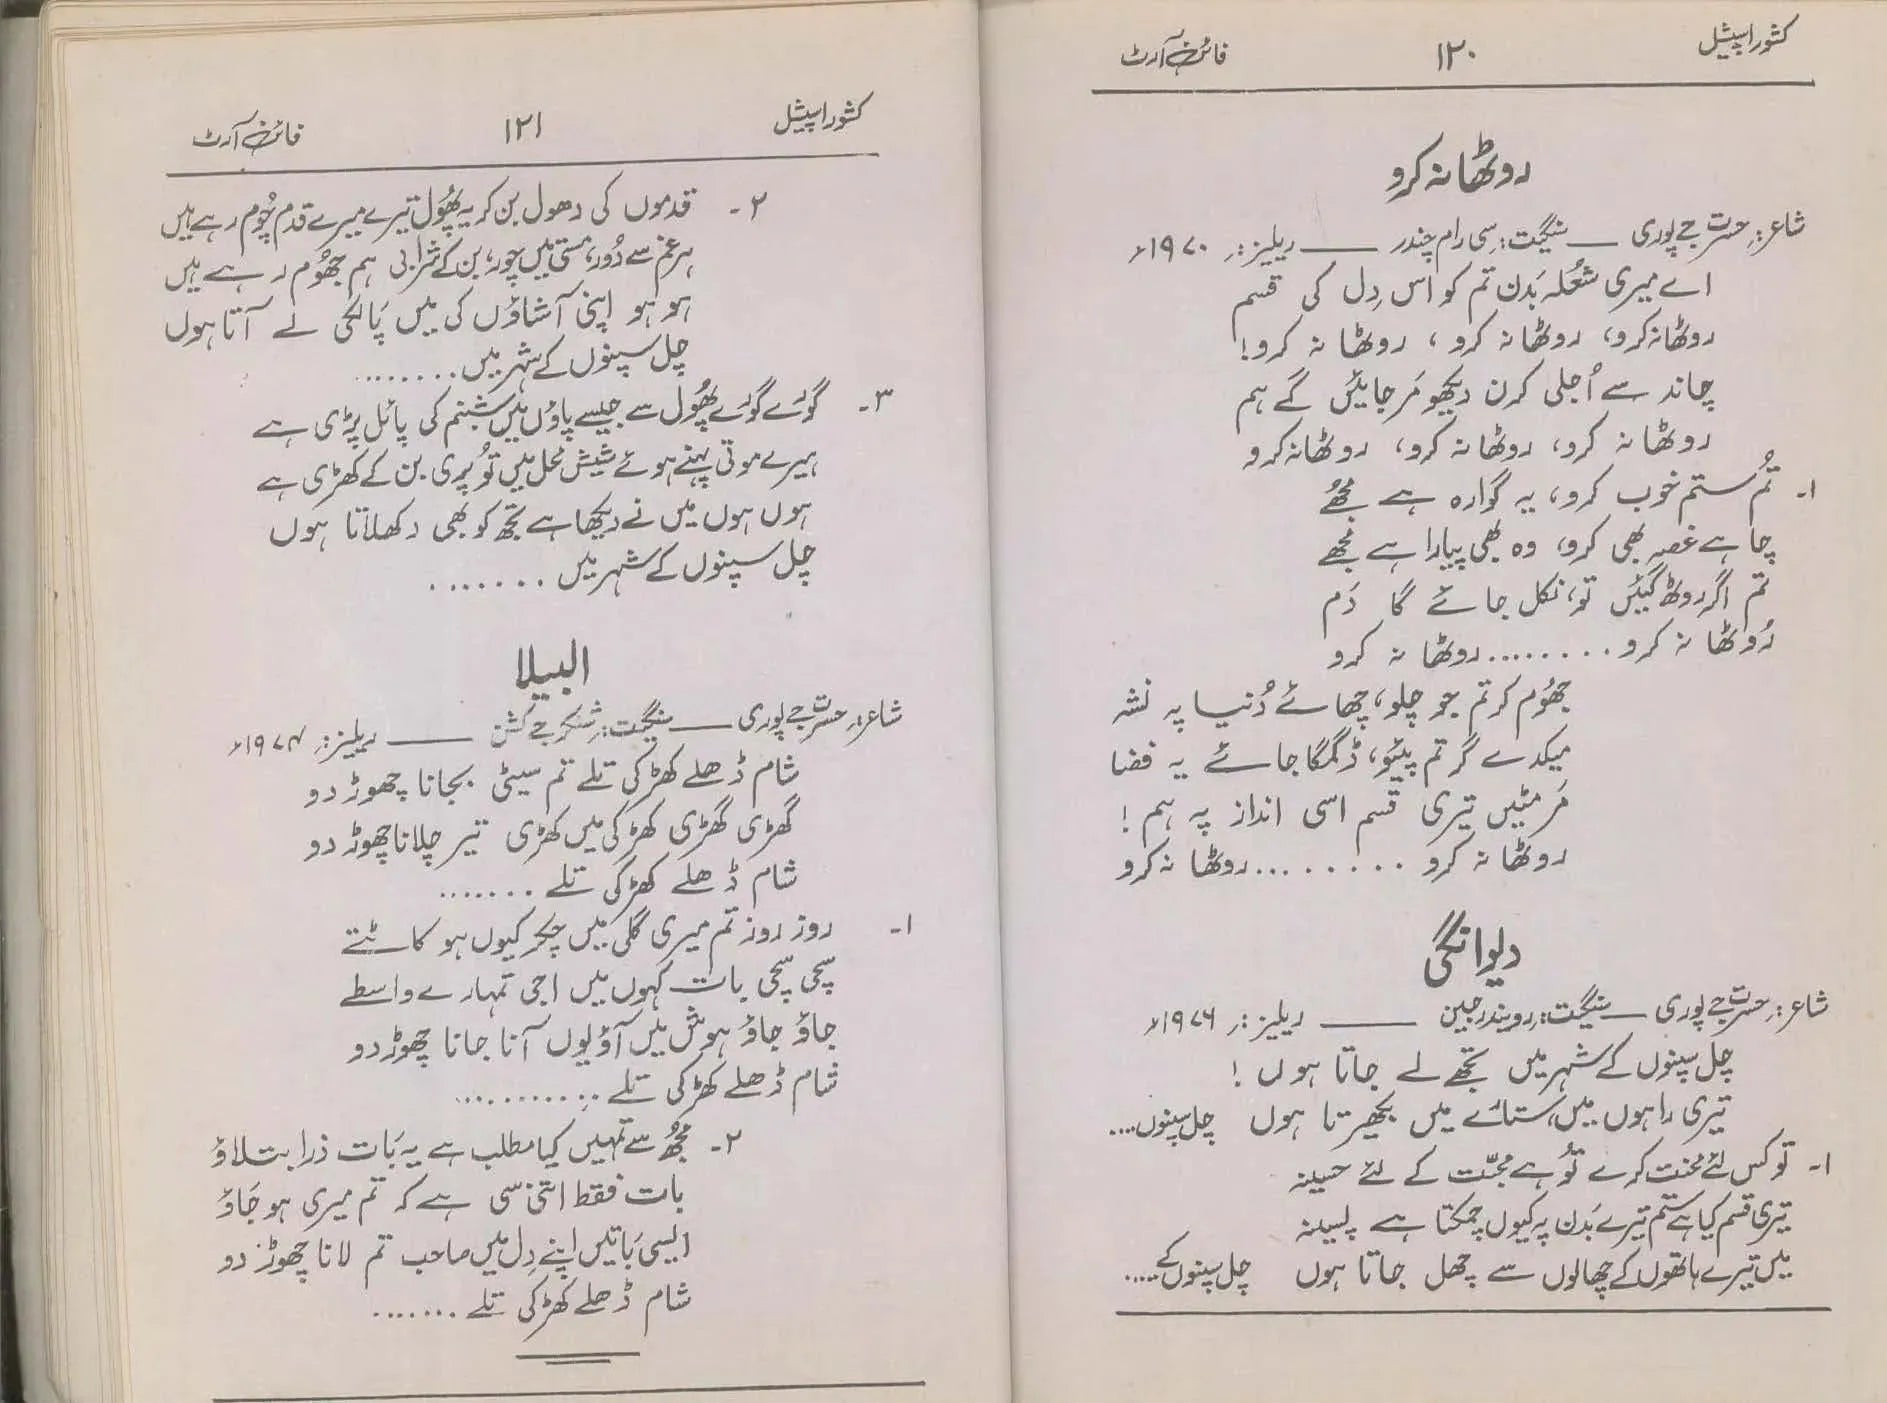 کشور اسپیشل ۱۲۰ فائن آرٹ
روٹھا نہ کرو
شاعر: حسرت جے پوری — سنگیت: سی رام چندر — ریلیز: ۱۹۷۰ء
اے میری شعلہ بَدن تم کو اس دِل کی قسم
روٹھا نہ کرو، روٹھا نہ کرو ، روٹھا نہ کرو!
چاند سے اُجلی کرن دیکھو مَر جائیں گے ہم
روٹھا نہ کرو، روٹھا نہ کرو، روٹھا نہ کرو
۱۔ تُم ستم خوب کرو، یہ گوارہ ہے مجھُے
چاہے غصہ بھی کرو، وہ بھی پیارا ہے مجھے
تم اگر روٹھ گیئں تو، نکل جائے گا دَم
رُوٹھا نہ کرو ........ روٹھا نہ کرو
جھُوم کر تم جو چلو، چھائے دُنیا پہ نشہ
میکدے گر تم پیئو، ڈگمگا جائے یہ فضا
مَر مٹیں تیری قسم اسی انداز پہ ہم !
روٹھا نہ کرو ......... روٹھا نہ کرو
دیوانگی
شاعر: حسرت جے پوری — سنگیت: رویندر جین — ریلیز: ۱۹۷۶ء
چل سپنوں کے شہر میں تجھے لے جاتا ہوں !
تیری راہوں میں، ستارے میں بکھیرتا ہوں چل سپنوں....
۱۔ تو کس لئے محنت کرے تُو ہے محبّت کے لئے حسینہ
تیری قسم کیا ہے ستم تیرے بَدن پہ کیوں چمکتا ہے پسینہ
میں تیرے ہاتھوں کے چھالوں سے چھل جاتا ہوں چل سپنوں کے....
کشور اسپیشل ۱۲۱ فائن آرٹ
۲۔ قدموں کی دھول بن کر یہ پھُول تیرے میرے قدم چُوم رہے ہیں
ہر غم سے دُور، مستی میں چور، بن کے شرابی ہم جھُوم رہے ہیں
ہو ہو اپنی آشاؤں کی میں پَالکی لے آتا ہوں
چل سپنوں کے شہر میں ........
۳۔ گورے گورے پھُول سے جیسے پاؤں میں شبنم کی پائل پڑی ہے
ہیرے موتی پہنے ہوئے شیش محل میں تُو پری بن کے کھڑی ہے
ہوں ہوں میں نے دیکھا ہے تجھ کو بھی دکھلاتا ہوں
چل سپنوں کے شہر میں .......
البیلا
شاعر: حسرت جے پوری — سنگیت: شنکر جے کشن — ریلیز: ۱۹۷۴ء
شام ڈھلے کھڑکی تلے تم سیٹی بجانا چھوڑ دو
گھڑی گھڑی کھڑکی میں کھڑی تیر چلانا چھوڑ دو
شام ڈھلے کھڑکی تلے .......
۱۔ روز روز تم میری گلی میں چکر کیوں ہو کاٹتے
سچی سچی بات کہوں میں اجی تمہارے واسطے
جاؤ جاؤ ہوش میں آؤ یوں آنا جانا چھوڑ دو
شام ڈھلے کھڑکی تلے ..........
۲۔ مجھُ سے تمہیں کیا مطلب ہے یہ بَات ذرا بتلاؤ
بات فقط اتنی سی ہے کہ تم میری ہو جَاؤ
ایسی بَاتیں اپنے دِل میں صاحب تم لانا چھوڑ دو
شام ڈھلے کھڑکی تلے .......